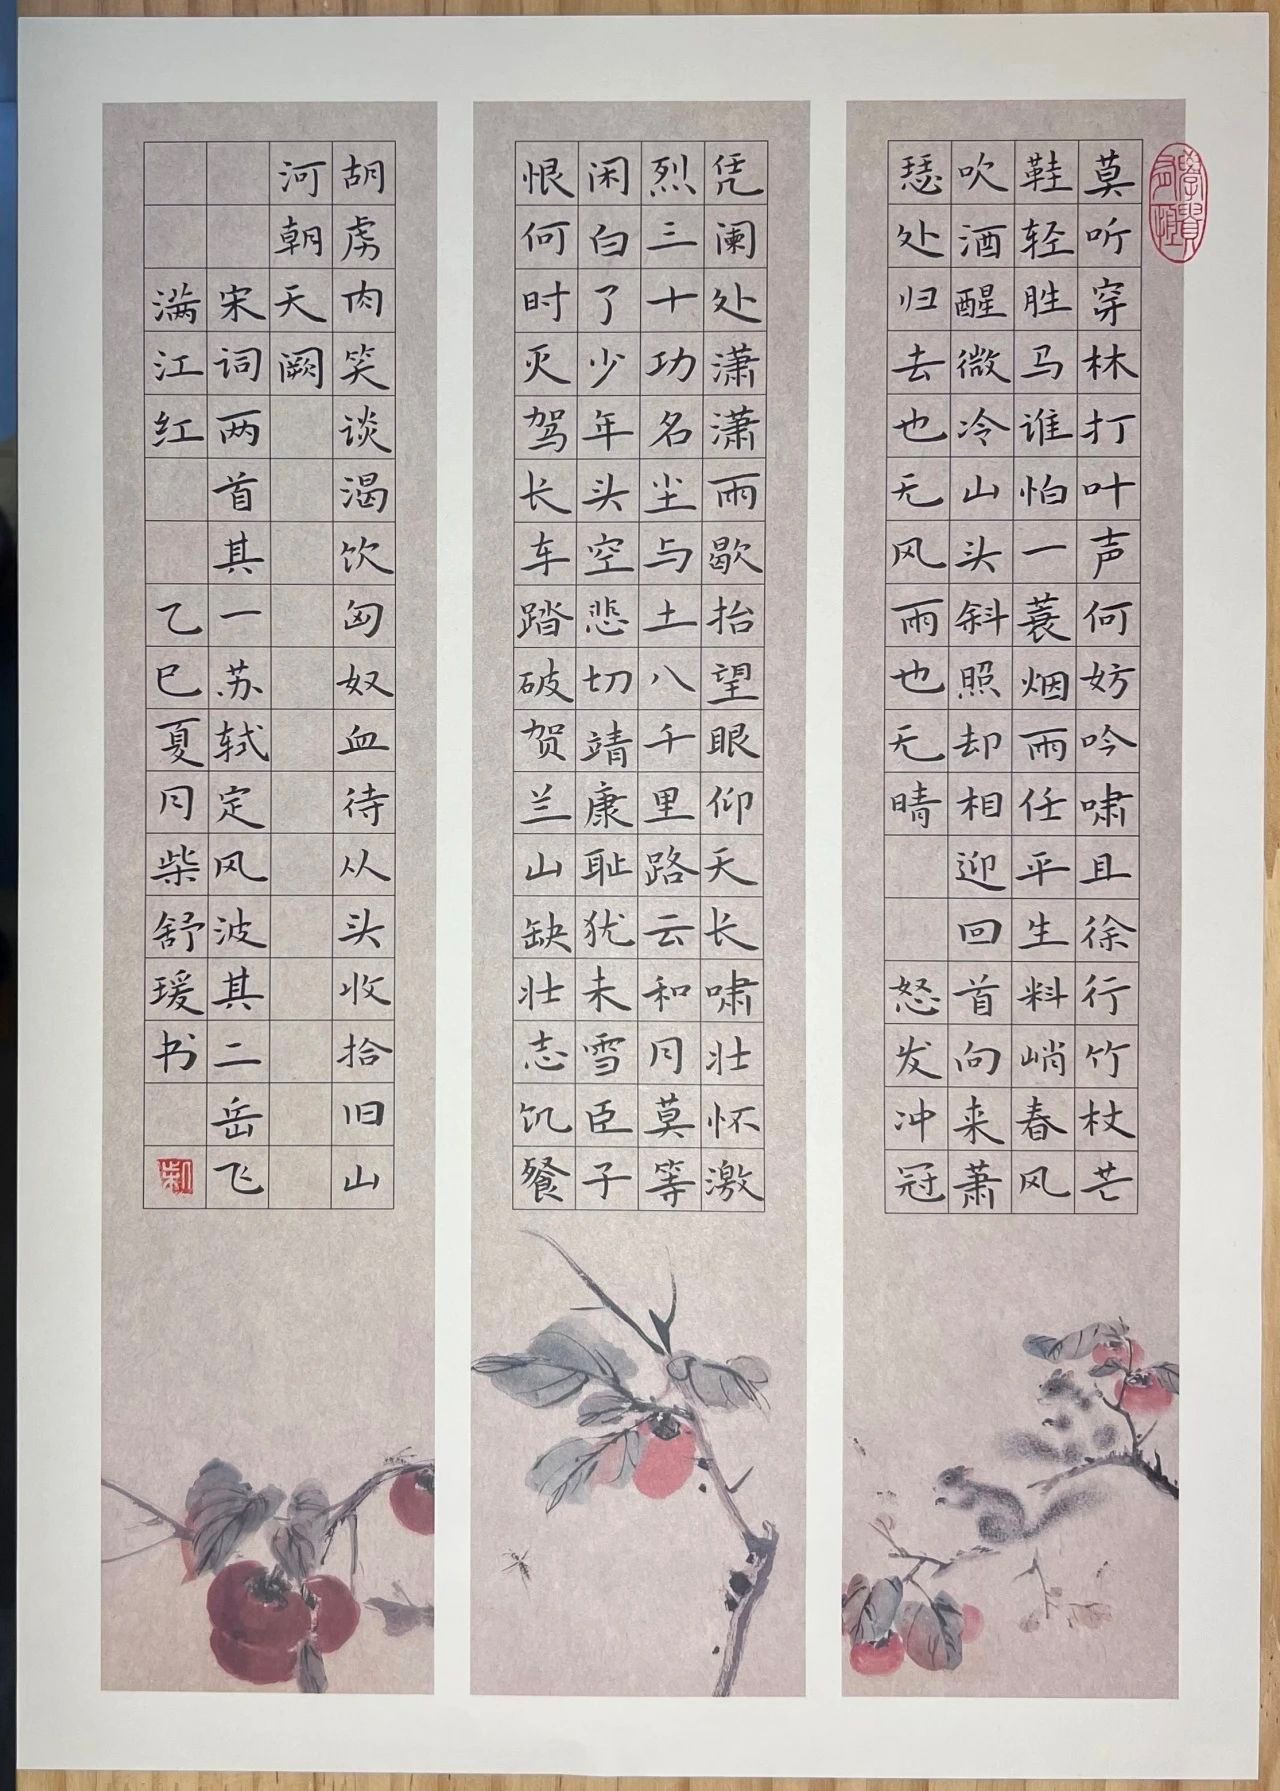 學貴有恒
莫听穿林打叶声何妨吟啸且徐行竹杖芒
鞋轻胜马谁怕一蓑烟雨任平生料峭春风
吹酒醒微冷山头斜照却相迎回首向来萧
瑟处归去也无风雨也无晴 怒发冲冠
凭阑处潇潇雨歇抬望眼仰天长啸壮怀激
烈三十功名尘与土八千里路云和月莫等
闲白了少年头空悲切靖康耻犹未雪臣子
恨何时灭驾长车踏破贺兰山缺壮志饥餐
胡虏肉笑谈渴饮匈奴血待从头收拾旧山
河朝天阙
宋词两首其一苏轼定风波其二岳飞
满江红 乙巳夏月柴舒瑗书